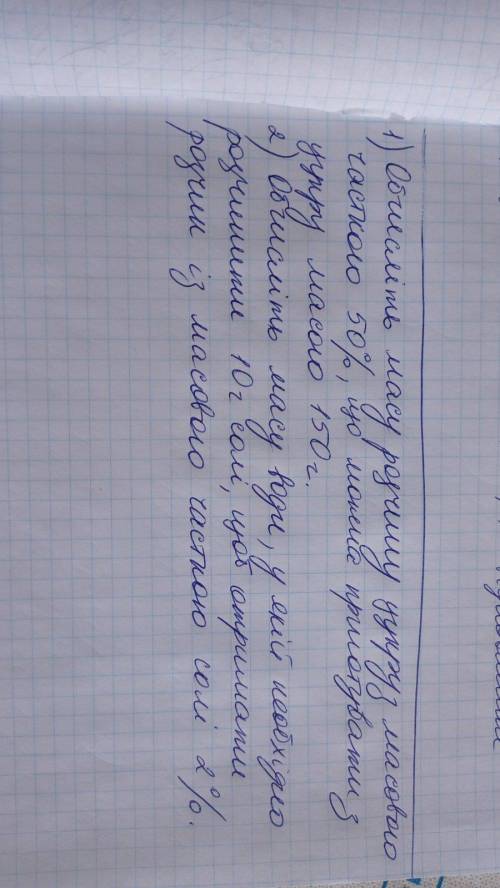 1) Обчисліть масу розчину цукру з масовою
часткою 50%, що можна приготувати з
цукру масою 150г.
2) Обчисліть масу води, у якій необхідно
розчинити 10г солі, щоб отримати
розчин із масовою часткою солі 2%.